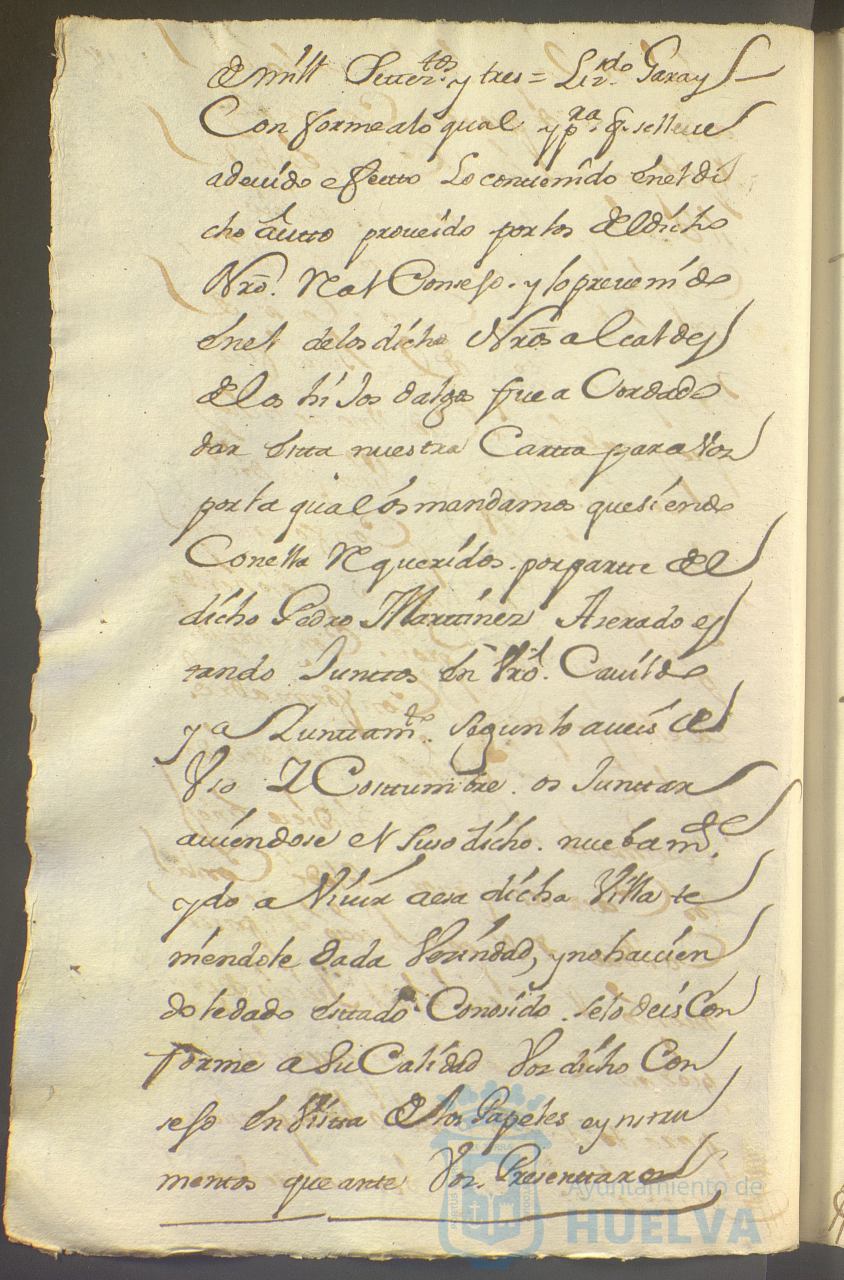 de mill Settez.tos y tres = Lizdo. Garay
Con forme alo qual y pra. q. se lleue
adeuido efectto Lo conttenido en el di
cho autto proueido por los del dicho
Nro. Real Consejo. y lo preuenido
en el de los dichos Nros alcaldes
de los hijos dalgo fue a Cordado
dar estta nuestra Cartta para Vos
por la qual os mandamos que siendo
Con ella Requeridos. por partte del
dicho Pedro Marttinez Aserado es
tando Junttos En Vro. Cauildo
y a Yunttamto. segun lo aueis de
Vso Y Costtumbre. os Junttar
auiendose el suso dicho. nuebamte.
ydo a Viuir a esa dicha Villa te
niendole dada Vecindad, y no hauien
dole dado esttado Conosido. se lo deis Con
forme a Su Calidad Vos dicho Con
sejo En Vistta de los Papeles e ynstru
menttos que antte Vos. Presenttare
Ayuntamiento de
HUELVA